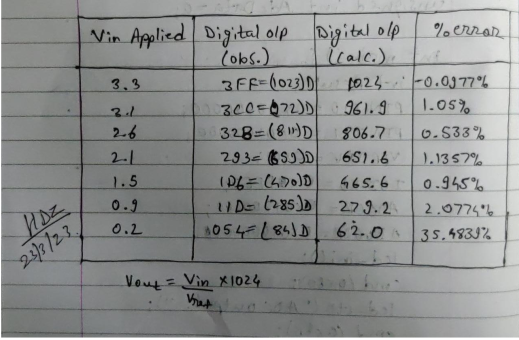 Vin Applied | Digital o/p (obs.) | Digital o/p (calc.) | % error
3.3 | 3FF=(1023)D | 1024 | -0.0977%
3.1 | 3CC=(972)D | 961.9 | 1.05%
2.6 | 32B=(811)D | 806.7 | 0.533%
2.1 | 293=(659)D | 651.6 | 1.1357%
1.5 | 1D6=(470)D | 465.6 | 0.945%
0.9 | 11D=(285)D | 279.2 | 2.0774%
0.2 | 054=(84)D | 62.0 | 35.4839%
23/3/23
Vout = Vin/Vref ×1024